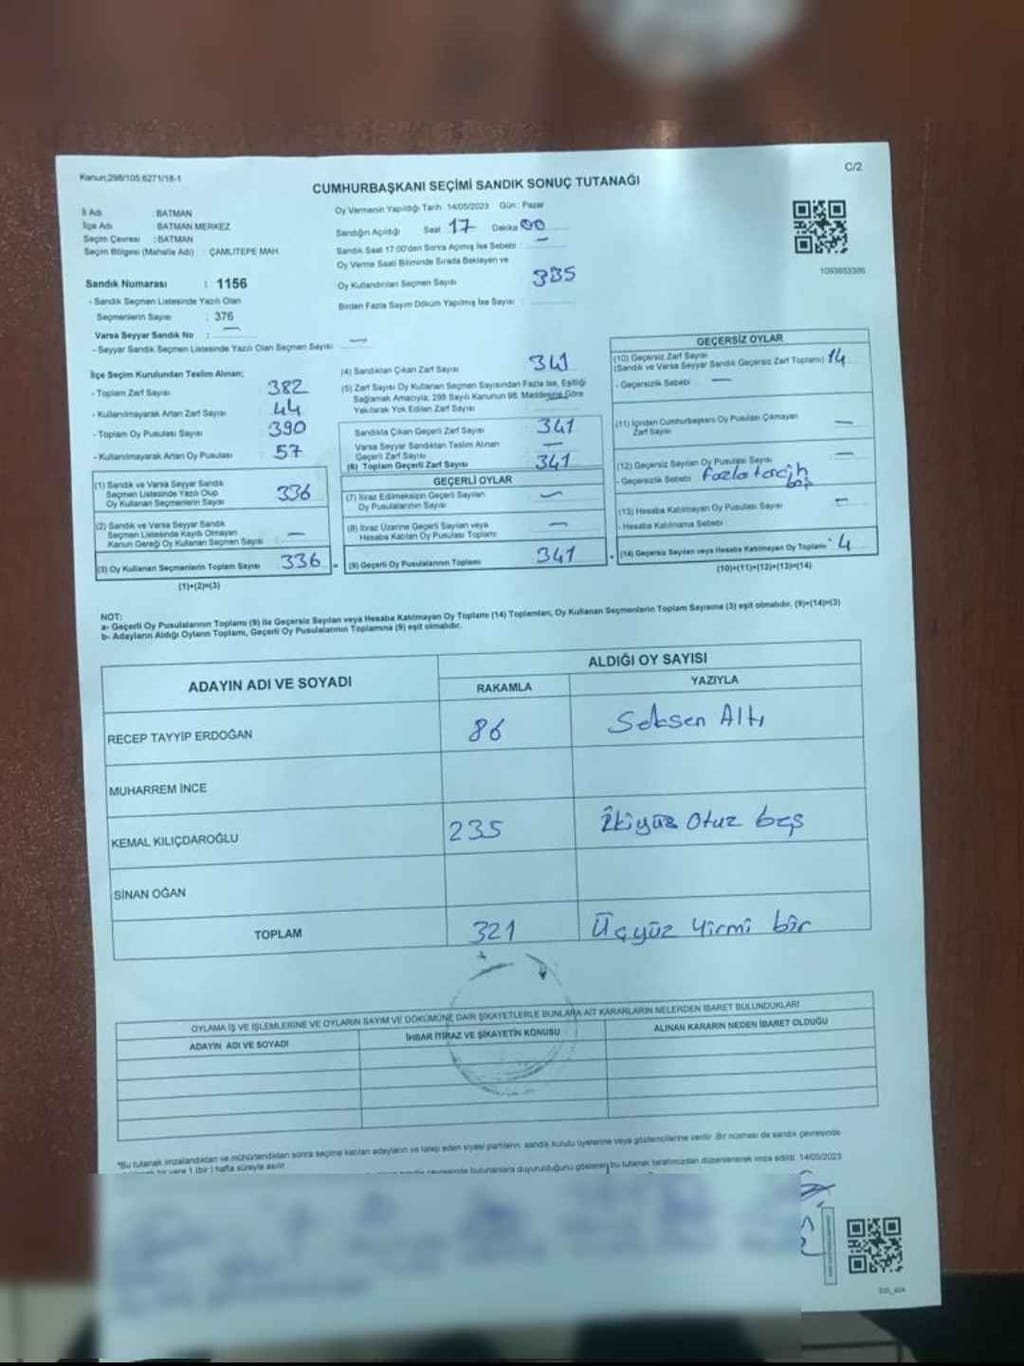 Kanun:298/105;6271/18-1
C/2
CUMHURBAŞKANI SEÇİMİ SANDIK SONUÇ TUTANAĞI
İl Adı : BATMAN
İlçe Adı : BATMAN MERKEZ
Seçim Çevresi : BATMAN
Seçim Bölgesi (Mahalle Adı) : ÇAMLITEPE MAH.
Sandık Numarası : 1156
- Sandık Seçmen Listesinde Yazılı Olan
Seçmenlerin Sayısı : 376
Varsa Seyyar Sandık No : —
- Seyyar Sandık Seçmen Listesinde Yazılı Olan Seçmen Sayısı —
Oy Vermenin Yapıldığı Tarih 14/05/2023 Gün : Pazar
Sandığın Açıldığı Saat 17 Dakika 00
Sandık Saat 17:00'dan Sonra Açılmış İse Sebebi : —
Oy Verme Saati Bitiminde Sırada Bekleyen ve
Oy Kullandırılan Seçmen Sayısı 335
Birden Fazla Sayım Döküm Yapılmış İse Sayısı :
1093653386
İlçe Seçim Kurulundan Teslim Alınan;
- Toplam Zarf Sayısı 382
- Kullanılmayarak Artan Zarf Sayısı 44
- Toplam Oy Pusulası Sayısı 390
- Kullanılmayarak Artan Oy Pusulası 57
(1) Sandık ve Varsa Seyyar Sandık
Seçmen Listesinde Yazılı Olup
Oy Kullanan Seçmenlerin Sayısı 336
(2) Sandık ve Varsa Seyyar Sandık
Seçmen Listesinde Kayıtlı Olmayan
Kanun Gereği Oy Kullanan Seçmen Sayısı —
(3) Oy Kullanan Seçmenlerin Toplam Sayısı 336 =
(1)+(2)=(3)
(4) Sandıktan Çıkan Zarf Sayısı 341
(5) Zarf Sayısı Oy Kullanan Seçmen Sayısından Fazla İse, Eşitliği
Sağlamak Amacıyla, 298 Sayılı Kanunun 98. Maddesine Göre
Yakılarak Yok Edilen Zarf Sayısı
Sandıkta Çıkan Geçerli Zarf Sayısı 341
Varsa Seyyar Sandıktan Teslim Alınan
Geçerli Zarf Sayısı —
(6) Toplam Geçerli Zarf Sayısı 341
GEÇERLİ OYLAR
(7) İtiraz Edilmeksizin Geçerli Sayılan
Oy Pusulalarının Sayısı —
(8) İtiraz Üzerine Geçerli Sayılan veya
Hesaba Katılan Oy Pusulası Toplamı —
(9) Geçerli Oy Pusulalarının Toplamı 341 +
GEÇERSİZ OYLAR
(10) Geçersiz Zarf Sayısı
(Sandık ve Varsa Seyyar Sandık Geçersiz Zarf Toplamı) 14
- Geçersizlik Sebebi —
(11) İçinden Cumhurbaşkanı Oy Pusulası Çıkmayan
Zarf Sayısı —
(12) Geçersiz Sayılan Oy Pusulası Sayısı —
- Geçersizlik Sebebi fazla tacih
(13) Hesaba Katılmayan Oy Pusulası Sayısı —
- Hesaba Katılmama Sebebi
(14) Geçersiz Sayılan veya Hesaba Katılmayan Oy Toplamı 4
(10)+(11)+(12)+(13)=(14)
NOT:
a- Geçerli Oy Pusulalarının Toplamı (9) ile Geçersiz Sayılan veya Hesaba Katılmayan Oy Toplamı (14) Toplamları, Oy Kullanan Seçmenlerin Toplam Sayısına (3) eşit olmalıdır. (9)+(14)=(3)
b- Adayların Aldığı Oyların Toplamı, Geçerli Oy Pusulalarının Toplamına (9) eşit olmalıdır.
ADAYIN ADI VE SOYADI
ALDIĞI OY SAYISI
RAKAMLA YAZIYLA
RECEP TAYYİP ERDOĞAN 86 Seksen Altı
MUHARREM İNCE
KEMAL KILIÇDAROĞLU 235 İkiyüz Otuz beş
SİNAN OĞAN
TOPLAM 321 Üçyüz Yirmi bir
OYLAMA İŞ VE İŞLEMLERİNE VE OYLARIN SAYIM VE DÖKÜMÜNE DAİR ŞİKAYETLERLE BUNLARA AİT KARARLARIN NELERDEN İBARET BULUNDUKLARI
ADAYIN ADI VE SOYADI İHBAR İTİRAZ VE ŞİKAYETİN KONUSU ALINAN KARARIN NEDEN İBARET OLDUĞU
*Bu tutanak imzalandıktan ve mühürlendikten sonra seçime katılan adayların ve talep eden siyasi partilerin sandık kurulu üyelerine veya gözlemcilerine verilir. Bir nüshası da sandık çevresinde
bir yere 1 (bir) hafta süreyle asılır.
bulunanlara duyurulduğunu gösteren bu tutanak tarafımızdan düzenlenerek imza edildi. 14/05/2023